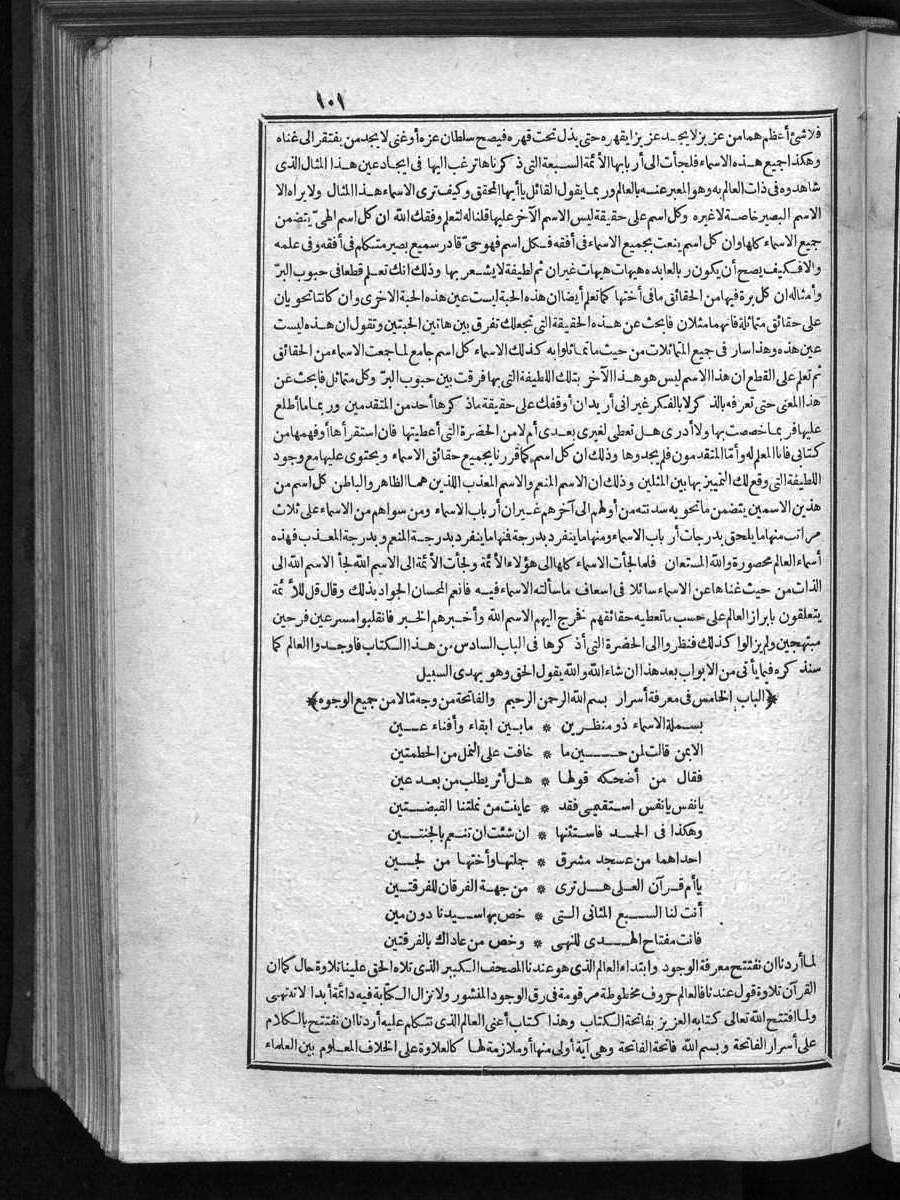 ١٠١
فلا شئ أعظم هما من عزيز لا يجد عزيزا يقهره حتى يذل تحت قهره فيصح سلطان عزه أو غنى لا يجد من يفتقر الى غناه
وهكذا جميع هذه الاسماء فلجأت الى أربابها الأئمة السبعة التى ذكرناها ترغب اليها فى ايجاد عين هذا المثال الذى
شاهدوه فى ذات العالم به وهو المعبر عنه بالعالم وربما يقول القائل يا أيها المحقق وكيف ترى الاسماء هذا المثال ولا يراه الا
الاسم البصير خاصة لا غيره وكل اسم على حقيقة ليس الاسم الآخر عليها قلنا له لتعلم وفقك الله ان كل اسم الهىّ يتضمن
جميع الاسماء كلها وان كل اسم ينعت بجميع الاسماء فى أفقه فكل اسم فهو حىّ قادر سميع بصير متكلم فى أفقه وفى علمه
والا فكيف يصح أن يكون ربا لعابده هيهات هيهات غير ان ثم لطيفة لا يشعر بها وذلك انك تعلم قطعا فى حبوب البرّ
وأمثاله ان كل برة فيها من الحقائق ما فى أختها كما تعلم أيضا ان هذه الحبة ليست عين هذه الحبة الاخرى وان كانتا تحويان
على حقائق متماثلة فانهما مثلان فابحث عن هذه الحقيقة التى تجعلك تفرق بين هاتين الحبتين وتقول ان هذه ليست
عين هذه وهذا سار فى جميع المتماثلات من حيث ما تماثلوا به كذلك الاسماء كل اسم جامع لما جمعت الاسماء من الحقائق
ثم تعلم على القطع ان هذا الاسم ليس هو هذا الآخر بتلك اللطيفة التى بها فرقت بين حبوب البرّ وكل متماثل فابحث عن
هذا المعنى حتى تعرفه بالذكر لا بالفكر غير انى أريد ان أوقفك على حقيقة ما ذكرها أحد من المتقدمين وربما ما أطلع
عليها فربما خصصت بها ولا أدرى هل تعطى لغيرى بعدى أم لا من الحضرة التى أعطيتها فان استقرأها أو فهمها من
كتابى فانا المعلم له وأما المتقدمون فلم يجدوها وذلك ان كل اسم كما قررنا يجميع حقائق الاسماء ويحتوى عليها مع وجود
اللطيفة التى وقع لك التمييز بها بين المثلين وذلك ان الاسم المنعم والاسم المعذب اللذين هما الظاهر والباطن كل اسم من
هذين الاسمين يتضمن ما تحويه سدنته من أولهم الى آخرهم غير ان أرباب الاسماء ومن سواهم من الاسماء على ثلاث
مراتب منها ما يلحق بدرجات أرباب الاسماء ومنها ما ينفرد بدرجة فمنها ما ينفرد بدرجة المنعم وبدرجة المعذب فهذه
أسماء العالم محصورة والله المستعان فلما لجأت الاسماء كلها الى هؤلاء الأئمة ولجأت الأئمة الى الاسم الله لجأ الاسم الله الى
الذات من حيث غناها عن الاسماء سائلا فى اسعاف ما سألته الاسماء فيه فانعم المحسان الجواد بذلك وقال قل للأئمة
يتعلقون بابراز العالم على حسب ما تعطيه حقائقهم فخرج اليهم الاسم الله وأخبرهم الخبر فانقلبوا مسرعين فرحين
مبتهجين ولم يزالوا كذلك فنظروا الى الحضرة التى أذكرها فى الباب السادس من هذا الكتاب فاوجدوا العالم كما
سنذكره فيما يأتى من الابواب بعد هذا ان شاء الله والله يقول الحق وهو يهدى السبيل
﴿الباب الخامس فى معرفة أسرار بسم الله الرحمن الرحيم والفاتحة من وجه ما لا من جميع الوجوه﴾
بسملة الاسماء ذو منظرين * ما بين ابقاء وأفناء عين
الا بمن قالت لمن حين ما * خافت على النمل من الحطمتين
فقال من أضحكه قولها * هل أثر يطلب من بعد عين
يا نفس يا نفس استقيمى فقد * عاينت من نملتنا القبضتين
وهكذا فى الحمد فاستثنها * ان شئت ان تنعم بالجنتين
احداهما من عسجد مشرق * جلتها وأختها من لجين
يا أم قرآن العلى هل ترى * من جهة الفرقان للفرقتين
أنت لنا السبع المثانى التى * خص بها سيدنا دون مين
فانت مفتاح الهدى للنهى * وخص من عاداك بالفرقتين
لما أردنا ان نفتتح معرفة الوجود وابتداء العالم الذى هو عندنا المصحف الكبير الذى تلاه الحق علينا تلاوة حال كما ان
القرآن تلاوة قول عندنا فالعالم حروف مخطوطة مرقومة فى رق الوجود المنشور ولا تزال الكتابة فيه دائمة أبدا لا تنتهى
ولما افتتح الله تعالى كتابه العزيز بفاتحة الكتاب وهذا كتاب أعنى العالم الذى نتكلم عليه أردنا ان نفتتح بالكلام
على أسرار الفاتحة وبسم الله فاتحة الفاتحة وهى آية أولى منها أو ملازمة لها كالعلاوة على الخلاف المعلوم بين العلماء